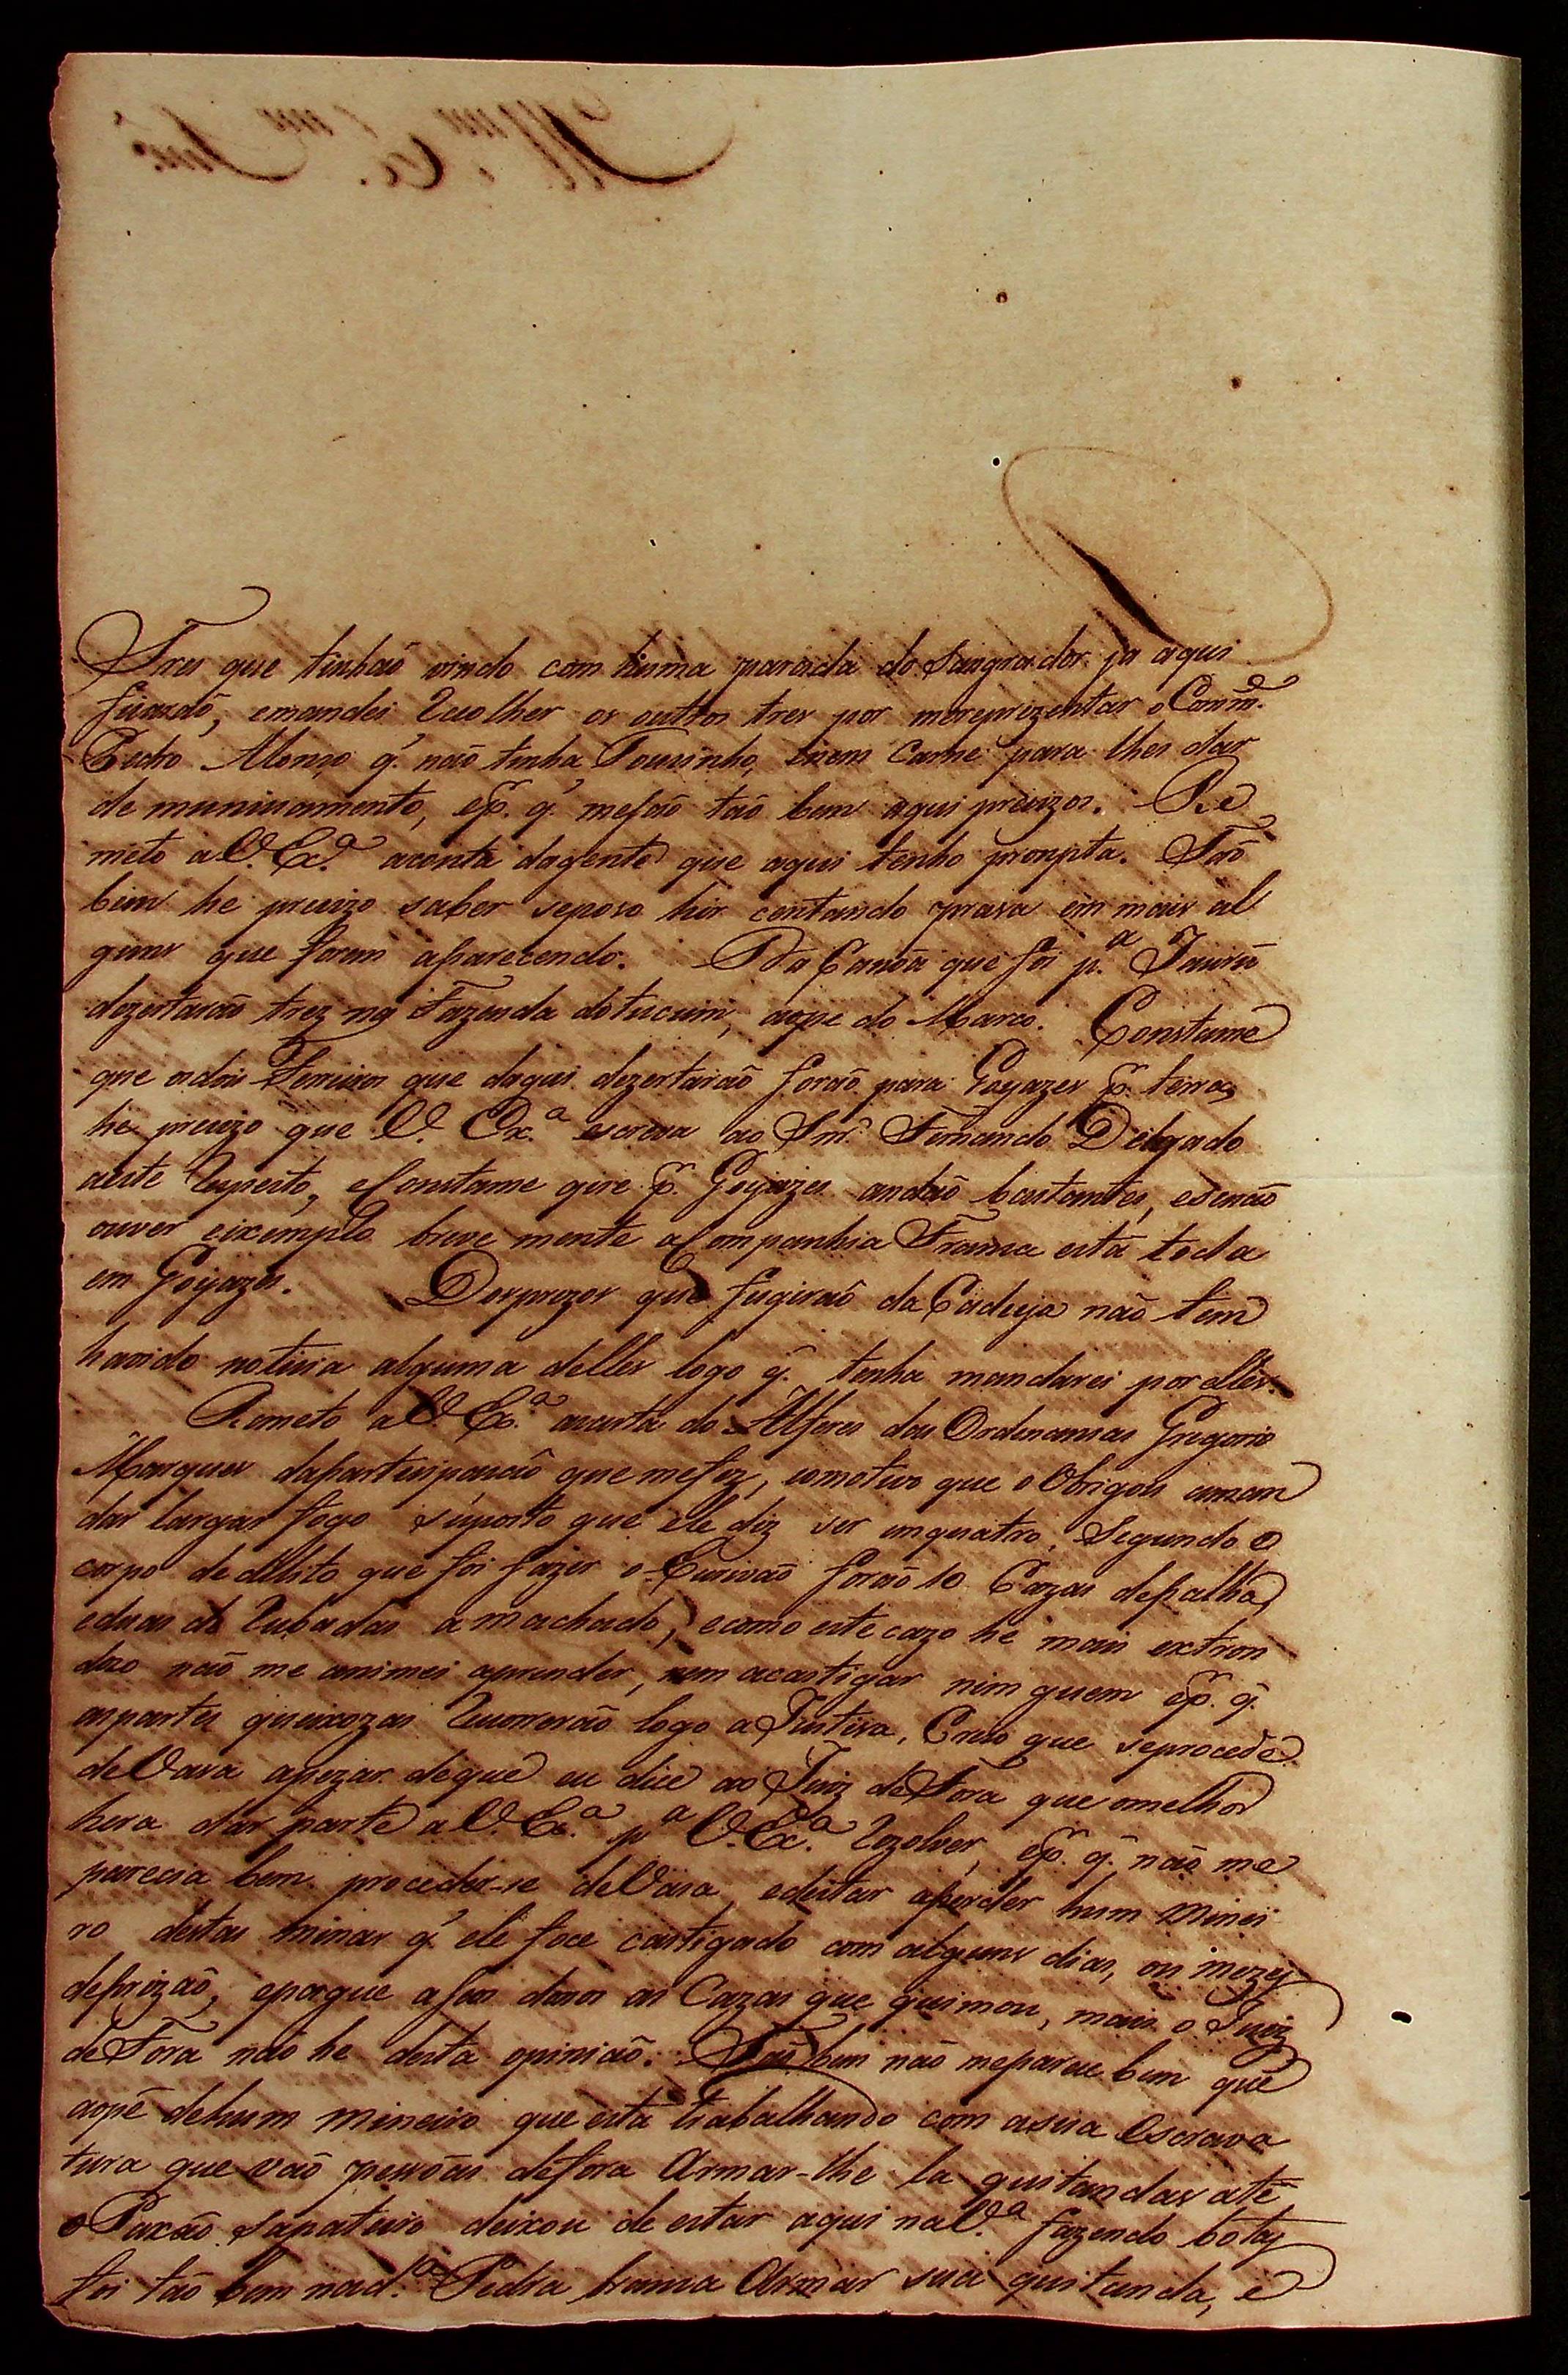 Tres que tinhaõ vindo com huma parada do Sangrador ja aqui
ficaraõ, emandei Recolher os outros tres por mereprezentar o Comm.de
Pedro Alonço q.' naõ tinha Toussinho, nem Carne para lhes dar
de municiamento, e p.r q.' mesaõ taõ bem aqui precizos. Re
meto a V. Ex.a aconta dagente que aqui tenho prompta. Taõ
bem he precizo saber seposo hir centando prasa em mais al
guns que forem aparecendo. Da Canoa que foi p.a Jaurú
dezertaraõ trez na Fazenda dotucum, aope do Marco. Constame
que os dois Ferreiros que daqui dezertaraõ foraõ para Goyazes p.r terra,
he precizo que V. Ex.a escreva ao Snr. Fernando Delgado
aeste Respeito, eConstame que p.r Goyazes andaõ bastantes, esenaõ
ouver eixemplo breve mente aCompanhia Franca está toda
em Goyazes. Dosprezos que fugiraõ da Cadeya naõ tem
havido noticia alguma delles logo q.' tenha mandarei por elles.
Remeto a V. Ex.a acarta do Alferes das Ordenansas Gregorio
Marques dapartecipacaõ que mefez, eomotivo que o Obrigou aman
dar largar fogo suposto que ele diz ser emquatro, Segundo o
corpo de delito que foi fazer o Escrivaõ foraõ 10 Cazas depalha,
eduas de Rubadas a machado, ecomo este cazo he mais extron
dzo naõ me animei aprender, nem acastigar nimguem e p.r q.'
aspartes queixozas Recorreraõ logo a Justisa, Creio que seprocede
deVasa apezar deque eu dice ao Juiz deFora que omelhor
hera dar parte a V. Ex.a p.a V. Ex.a Rezolver, e p.r q.' naõ me
parecia bem proceder-se deVasa edeitar aperder hum Minei
ro destas minas q.' ele foce castigado com alguns dias, ou mezes
deprizaõ, epague aseos donos as Cazas que queimou, mais o Juiz
deFora naõ he desta opiniaõ. Taõ bem naõ meparece bem que
aopé dehum Mineiro que está trabalhando com asua escrava
tura que vaõ pessoas defora Armar-lhe la quitandas até
o Paxaõ Sapateiro deixou de estar aqui na V.a fazendo botas
foi taõ bem nad.a Pedra branca Armar sua quitanda, e